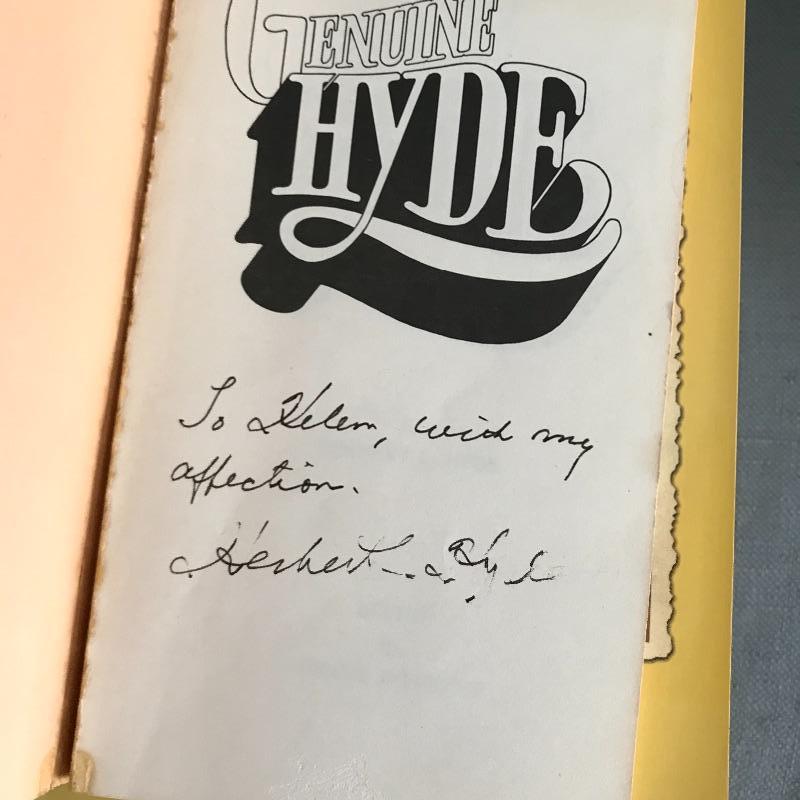 GENUINE
HYDE
To Helen, with my
affection.
Herbert L. Hyde